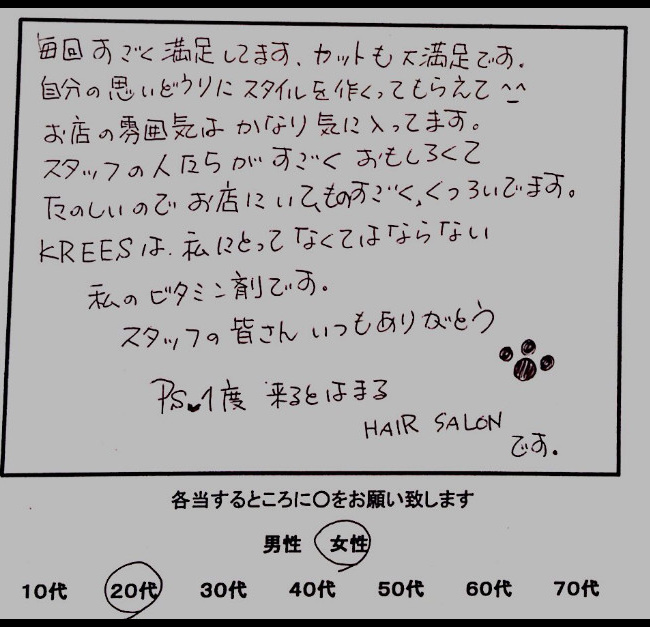 毎回すごく満足してます、カットも大満足です。
自分の思いどうりにスタイルを作くってもらえて^_^
お店の雰囲気はかなり気に入ってます。
スタッフの人たちがすごくおもしろくて
たのしいのでお店にいて、ものすごく、くつろいでます。
KREESは、私にとってなくてはならない
私のビタミン剤です。
スタッフの皆さんいつもありがとう
PS♥1度来るとはまる
HAIR SALON
です。
各当するところに〇をお願い致します
男性 女性
10代 20代 30代 40代 50代 60代 70代